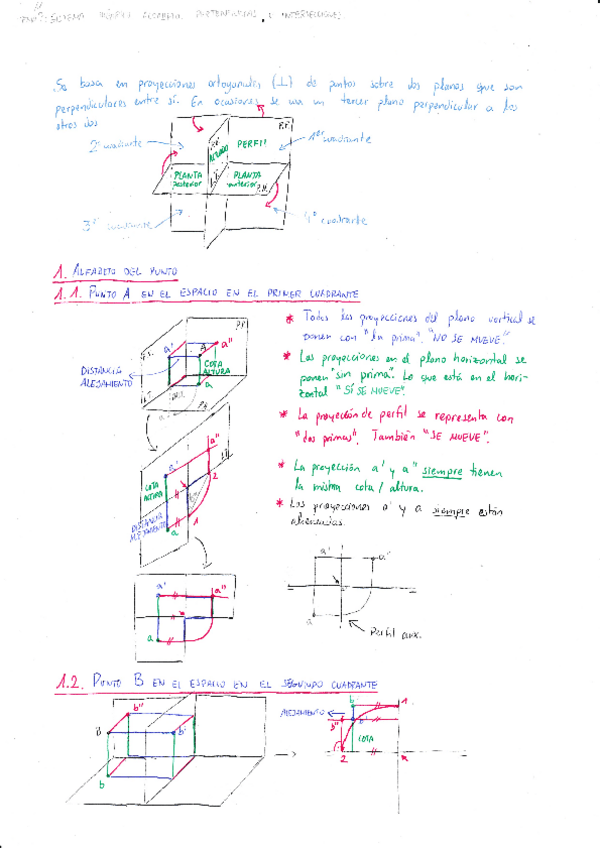 SISTEMA DIÉDRICO ALFABETO, PERTENENCIAS E INTERSECCIONES
Se basa en proyecciones ortogonales (⊥) de puntos sobre dos planos que son
perpendiculares entre sí. En ocasiones se usa un tercer plano perpendicular a los
otros dos
P.P.
2º cuadrante
1er cuadrante
ALZADO
PERFIL
PLANTA posterior
PLANTA anterior
P.H.
3er cuadrante
4º cuadrante
1. ALFABETO DEL PUNTO
1.1. PUNTO A EN EL ESPACIO EN EL PRIMER CUADRANTE
* Todas las proyecciones del plano vertical se
ponen con "la prima". "NO SE MUEVE".
* Las proyecciones en el plano horizontal se
ponen "sin prima". Lo que está en el hori-
zontal "SÍ SE MUEVE".
* La proyección de perfil se representa con
"dos primas". También "SE MUEVE".
* La proyección a' y a" siempre tienen
la misma cota / altura.
* Las proyecciones a' y a siempre están
alineadas.
P.P.
a'
A
a"
COTA
ALTURA
DISTANCIA
ALEJAMIENTO
a
P.H.
a'
a"
COTA
ALTURA
2
1
a
DISTANCIA
ALEJAMIENTO
a'
a"
a
a'
a"
a
Perfil aux.
1.2. PUNTO B EN EL ESPACIO EN EL SEGUNDO CUADRANTE
b"
B
b'
b
ALEJAMIENTO
b
1
b"
b'
COTA
2